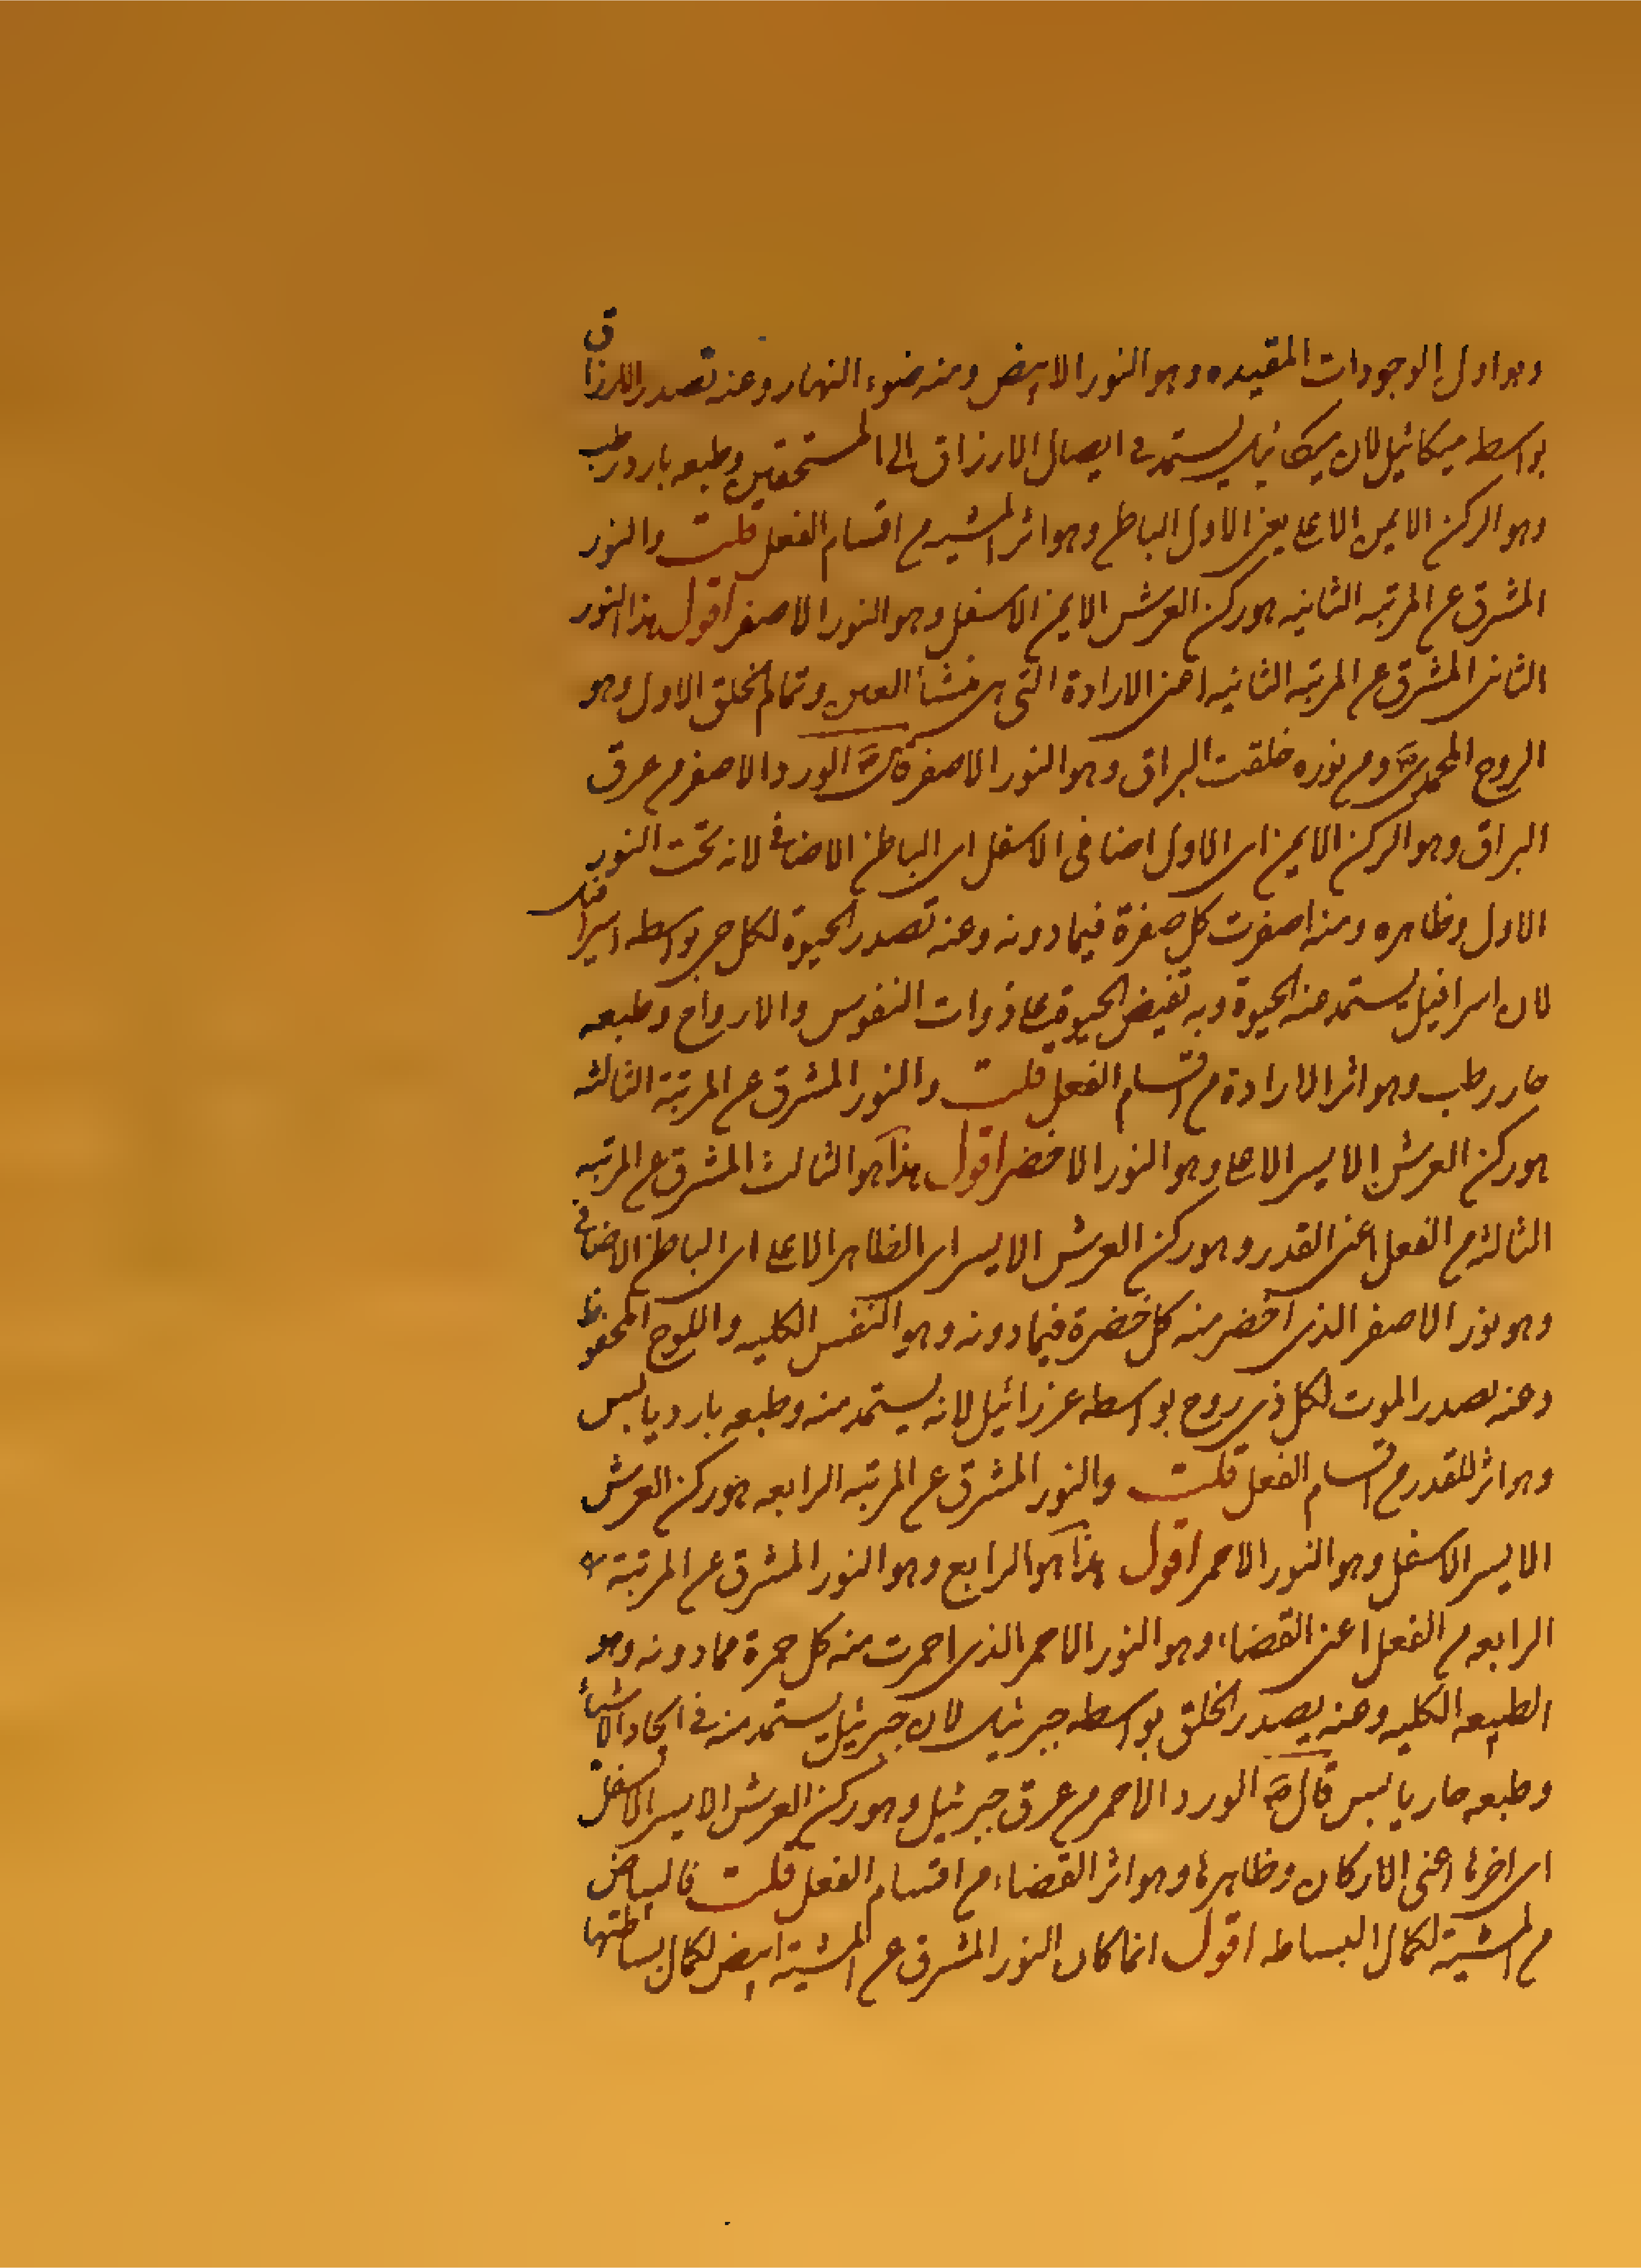 وهو اول الوجودات المقيده وهو النور الابيض ومنه ضوء النهار وعنه تصدر الارزاق
بواسطه ميكائيل لان ميكائيل يستمد في ايصال الارزاق الى المستحقين وطبعه بارد رطب
وهو الركن الايمن الاعلى يعنى الاول الباطن وهو اثر المشيه من اقسام الفعل قلت والنور
المشرق عن المرتبه الثانيه هو ركن العرش الايمن الاسفل وهو النور الاصفر اقول هذا النور
الثانى المشرق عن المرتبه الثانيه اعنى الارادة التى هى منشأ العين وتمام الخلق الاول وهو
الروح المحمدى ص ومن نوره خلقت البراق وهو النور الاصفر قال ص الورد الاصفر من عرق
البراق وهو الركن الايمن اى الاول اضافى الاسفل اى الباطن الاضافى لانه تحت النور
الاول وظاهره ومنه اصفرت كل صفرة فيما دونه وعنه تصدر الحيوة لكل حى بواسطه اسرافيل
لان اسرافيل يستمد منه الحيوة وبه تفيض الحيوة على ذوات النفوس والارواح وطبعه
حار رطب وهو اثر الارادة من اقسام الفعل قلت والنور المشرق عن المرتبة الثالثه
هو ركن العرش الايسر الاعلى وهو النور الاخضر اقول هذا هو الثالث المشرق عن المرتبه
الثالثه من الفعل اعنى القدر وهو ركن العرش الايسر اى الظاهر الاعلى اى الباطن الاضافى
وهو نور الاصفر الذى اخضر منه كل خضرة فيما دونه وهو النفس الكليه واللوح المحفوظ
وعنه تصدر الموت لكل ذى روح بواسطه عزرائيل لانه يستمد منه وطبعه بارد يابس
وهو اثر للقدر من اقسام الفعل قلت والنور المشرق عن المرتبه الرابعه هو ركن العرش
الايسر الاسفل وهو النور الاحمر اقول هذا هو الرابع وهو النور المشرق عن المرتبة
الرابعه من الفعل اعنى القضاء وهو النور الاحمر الذى احمرت منه كل حمرة مما دونه وهو
الطبيعه الكليه وعنه يصدر الخلق بواسطه جبرئيل لان جبرئيل يستمد منه فى ايجاد الاشياء
وطبعه حار يابس قال ص الورد الاحمر من عرق جبرئيل وهو ركن العرش الايسر الاسفل
اى اخرها اعنى الاركان وظاهرها وهو اثر القضاء من اقسام الفعل قلت فالبياض
من المشية لكمال البساطه اقول انما كان النور المشرق عن المشية ابيض لكمال بساطتها